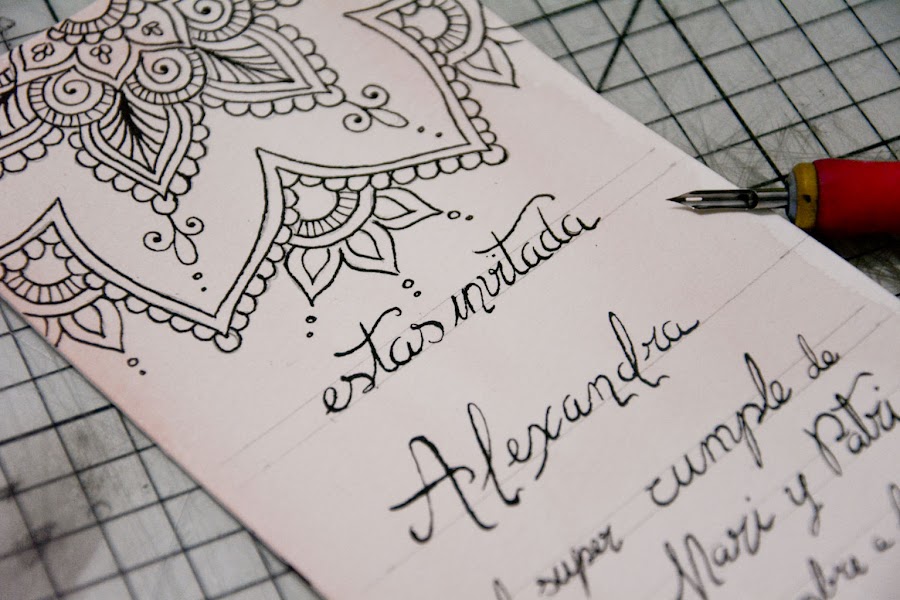 estas invitada
Alexandra
super cumple de
Mari y Patri